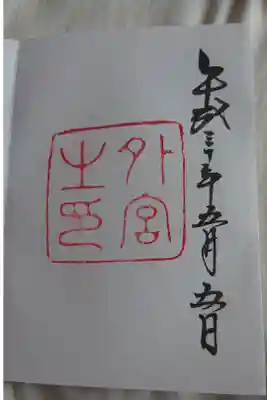 平成三十年五月五日
外宮
之印